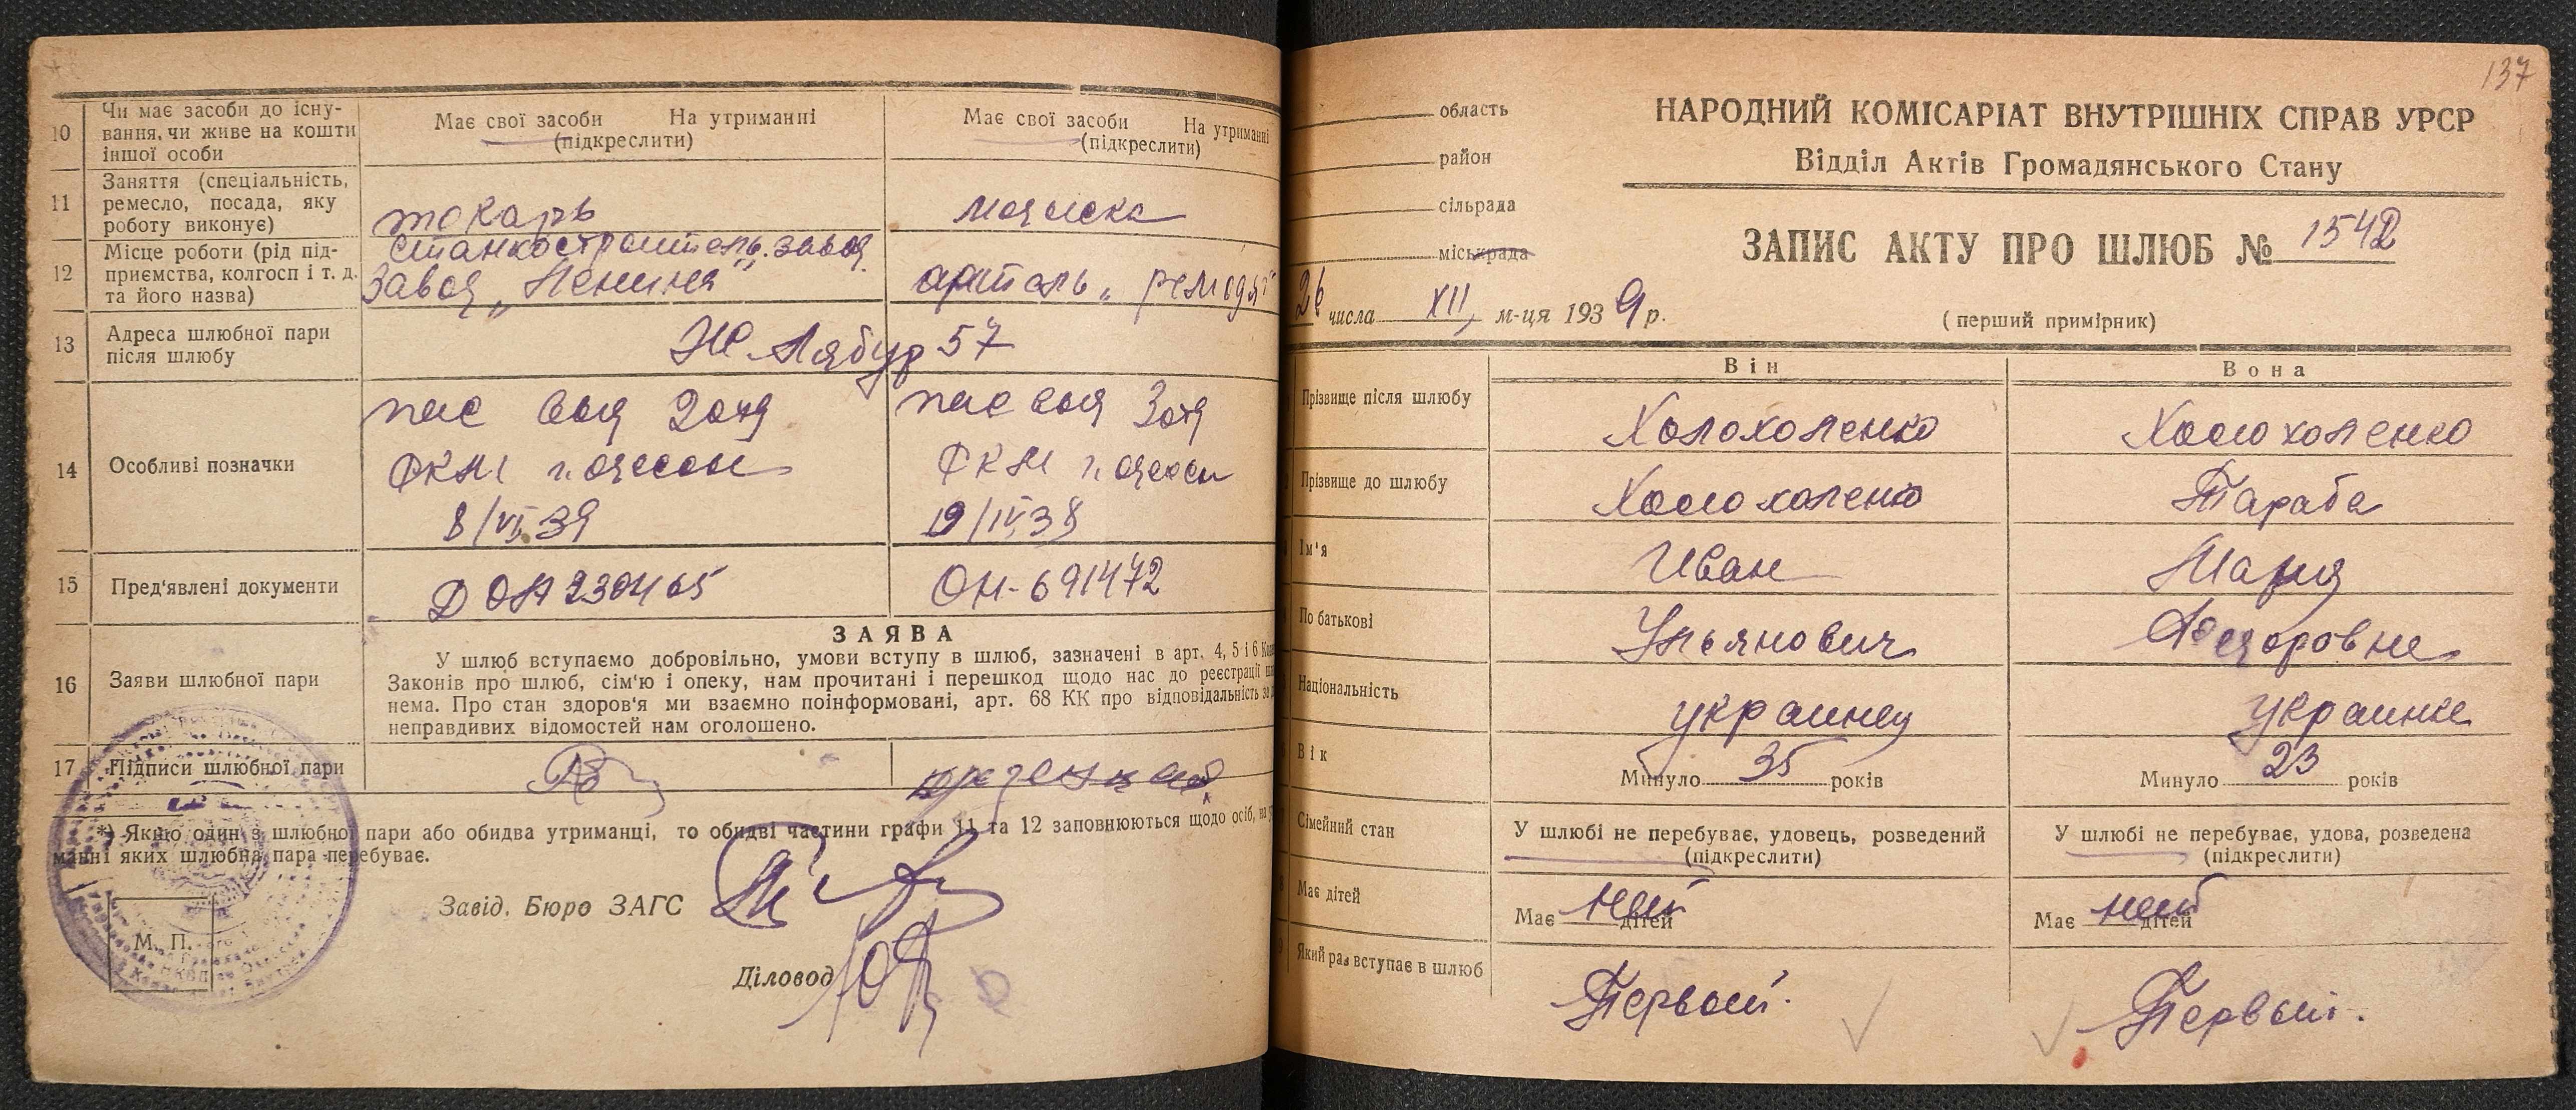 10 Чи має засоби до існу-
вання, чи живе на кошти
іншої особи
Має свої засоби На утриманні
(підкреслити)
Має свої засоби На утриманні
(підкреслити)
11 Заняття (спеціальність,
ремесло, посада, яку
роботу виконує)
токарь
12 Місце роботи (рід під-
приємства, колгосп і т. д.
та його назва)
Станкостроительн. завод
Завод „Ленина"
артель „
13 Адреса шлюбної пари
після шлюбу
57
14 Особливі позначки
пас выд
РКМ г. Одессы
8/VI 39
пас выд
РКМ г. Одессы
19/IV 38
15 Пред'явлені документи
ОН-691472
16 Заяви шлюбної пари
ЗАЯВА
У шлюб вступаємо добровільно, умови вступу в шлюб, зазначені в арт. 4, 5 і 6
Законів про шлюб, сім'ю і опеку, нам прочитані і перешкод щодо нас до реєстрації
нема. Про стан здоров'я ми взаємно поінформовані, арт. 68 КК про відповідальність за
неправдивих відомостей нам оголошено.
17 Підписи шлюбної пари
*) Якщо один з шлюбної пари або обидва утриманці, то обидві частини графи 11 та 12 заповнюються щодо осіб, на у
манні яких шлюбна пара перебуває.
Завід. Бюро ЗАГС
Діловод
М. П.
137
область
район
сільрада
міськрада
НАРОДНИЙ КОМІСАРІАТ ВНУТРІШНІХ СПРАВ УРСР
Відділ Актів Громадянського Стану
ЗАПИС АКТУ ПРО ШЛЮБ № 1542
26 числа XII, м-ця 1939 р.
(перший примірник)
Він Вона
Прізвище після шлюбу Холохоленко Холохоленко
Прізвище до шлюбу Холохоленко Тараба
Ім'я Иван Мария
По батькові Ульянович Федоровна
Національність украинец украинка
Вік Минуло 35 років Минуло 23 років
Сімейний стан
У шлюбі не перебуває, удовець, розведений
(підкреслити)
У шлюбі не перебуває, удова, розведена
(підкреслити)
Має дітей Має нет дітей Має нет дітей
Який раз вступає в шлюб Первый. Первый.